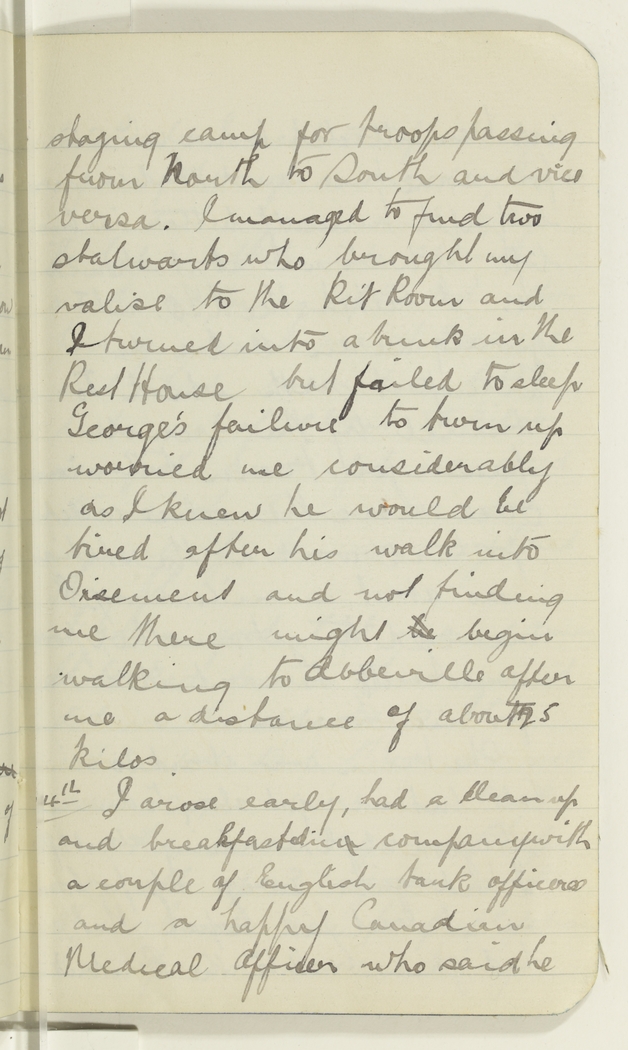 staging camp for troops passing
from North to South and vice
versa. I managed to find two
stalwarts who brought my
valise to the Kit Room and
I turned into a bunk in the
Rest House but failed to sleep
George's failure to turn up
worried me considerably
as I knew he would be
tired after his walk into
Oisement and not finding
me there might begin
walking to Abbeville after
me a distance of about 25
kilos
4th I arose early, had a clean up
and breakfasted in company with
a couple of English tank officers
and a happy Canadian
Medical Officer who said he